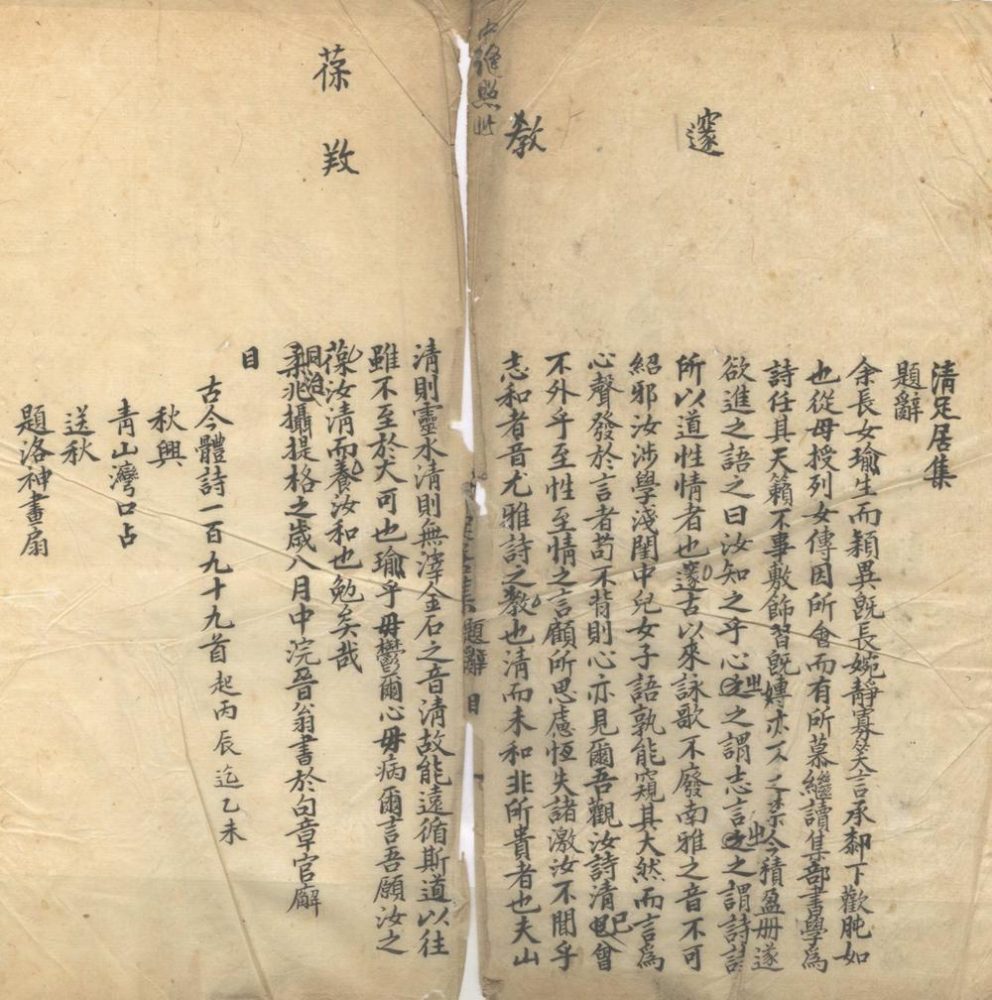 邃
教
清足居集
題辭
余長女瑜生而穎異旣長婉靜寡笑言承鄰下歡肫如
也從母授列女傳因所會而有所慕繼讀集部書學爲
詩任其天籟不事敷飾習旣專亦不之禁今積盈册遂
欲進之語之曰汝知之乎心之之謂志言之之謂詩詩
所以道性情者也邃古以來詠歌不廢南雅之音不可
紹邪汝涉學淺閨中兒女子語孰能窺其大然而言爲
心聲發於言者苟不背則心亦見爾吾觀汝詩清已曾
不外乎至性至情之言顧所思慮恆失諸激汝不聞乎
志和者音尤雅詩之教也清而未和非所貴者也夫山
題辭 目
葆
𢼄
清則靈水清則無滓金石之音清故能遠循斯道以往
雖不至於大可也瑜乎毋鬱爾心毋病爾言吾願汝之
葆汝清而養汝和也勉矣哉
同治
柔兆攝提格之歲八月中浣晉翁書於句章官廨
目
古今體詩一百九十九首 起丙辰迄乙未
秋興
青山灣口占
送秋
題洛神畫扇